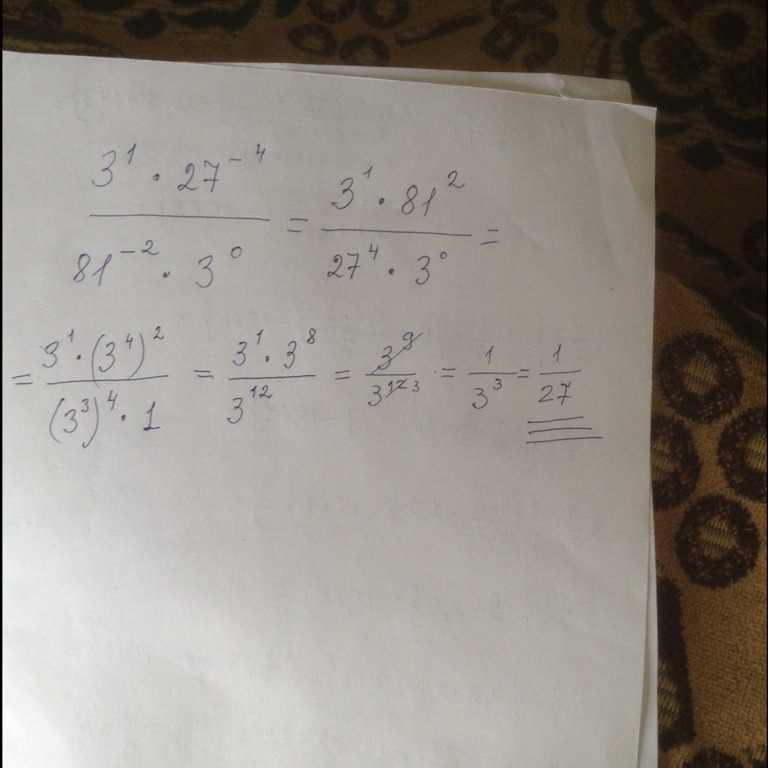 3¹ · 27⁻⁴ / 81⁻² · 3⁰ = 3¹ · 81² / 27⁴ · 3⁰ =
= 3¹ · (3⁴)² / (3³)⁴ · 1 = 3¹ · 3⁸ / 3¹² = 3⁹ / 3¹² ³ = 1 / 3³ = 1 / 27